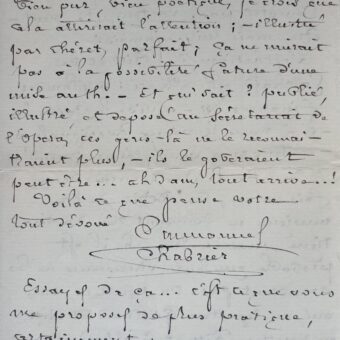 bien pur, bien poétique, je crois que
cela attirerait l'attention ; – illustré
par Chéret, parfait ; ça ne nuirait
pas à la possibilité future d'une
mise au th. – Et qui sait ? publié,
illustré, et déposé au Secrétariat de
l'Opéra, ces gens-là ne le reconnaî-
traient plus, – ils le goberaient
peut-être... ah dam, tout arrive...!
Voilà ce que pense votre
tout dévoué
Emmanuel
Chabrier
Essayez de ça... c'est ce que vous
me proposez de plus pratique,
certainement.